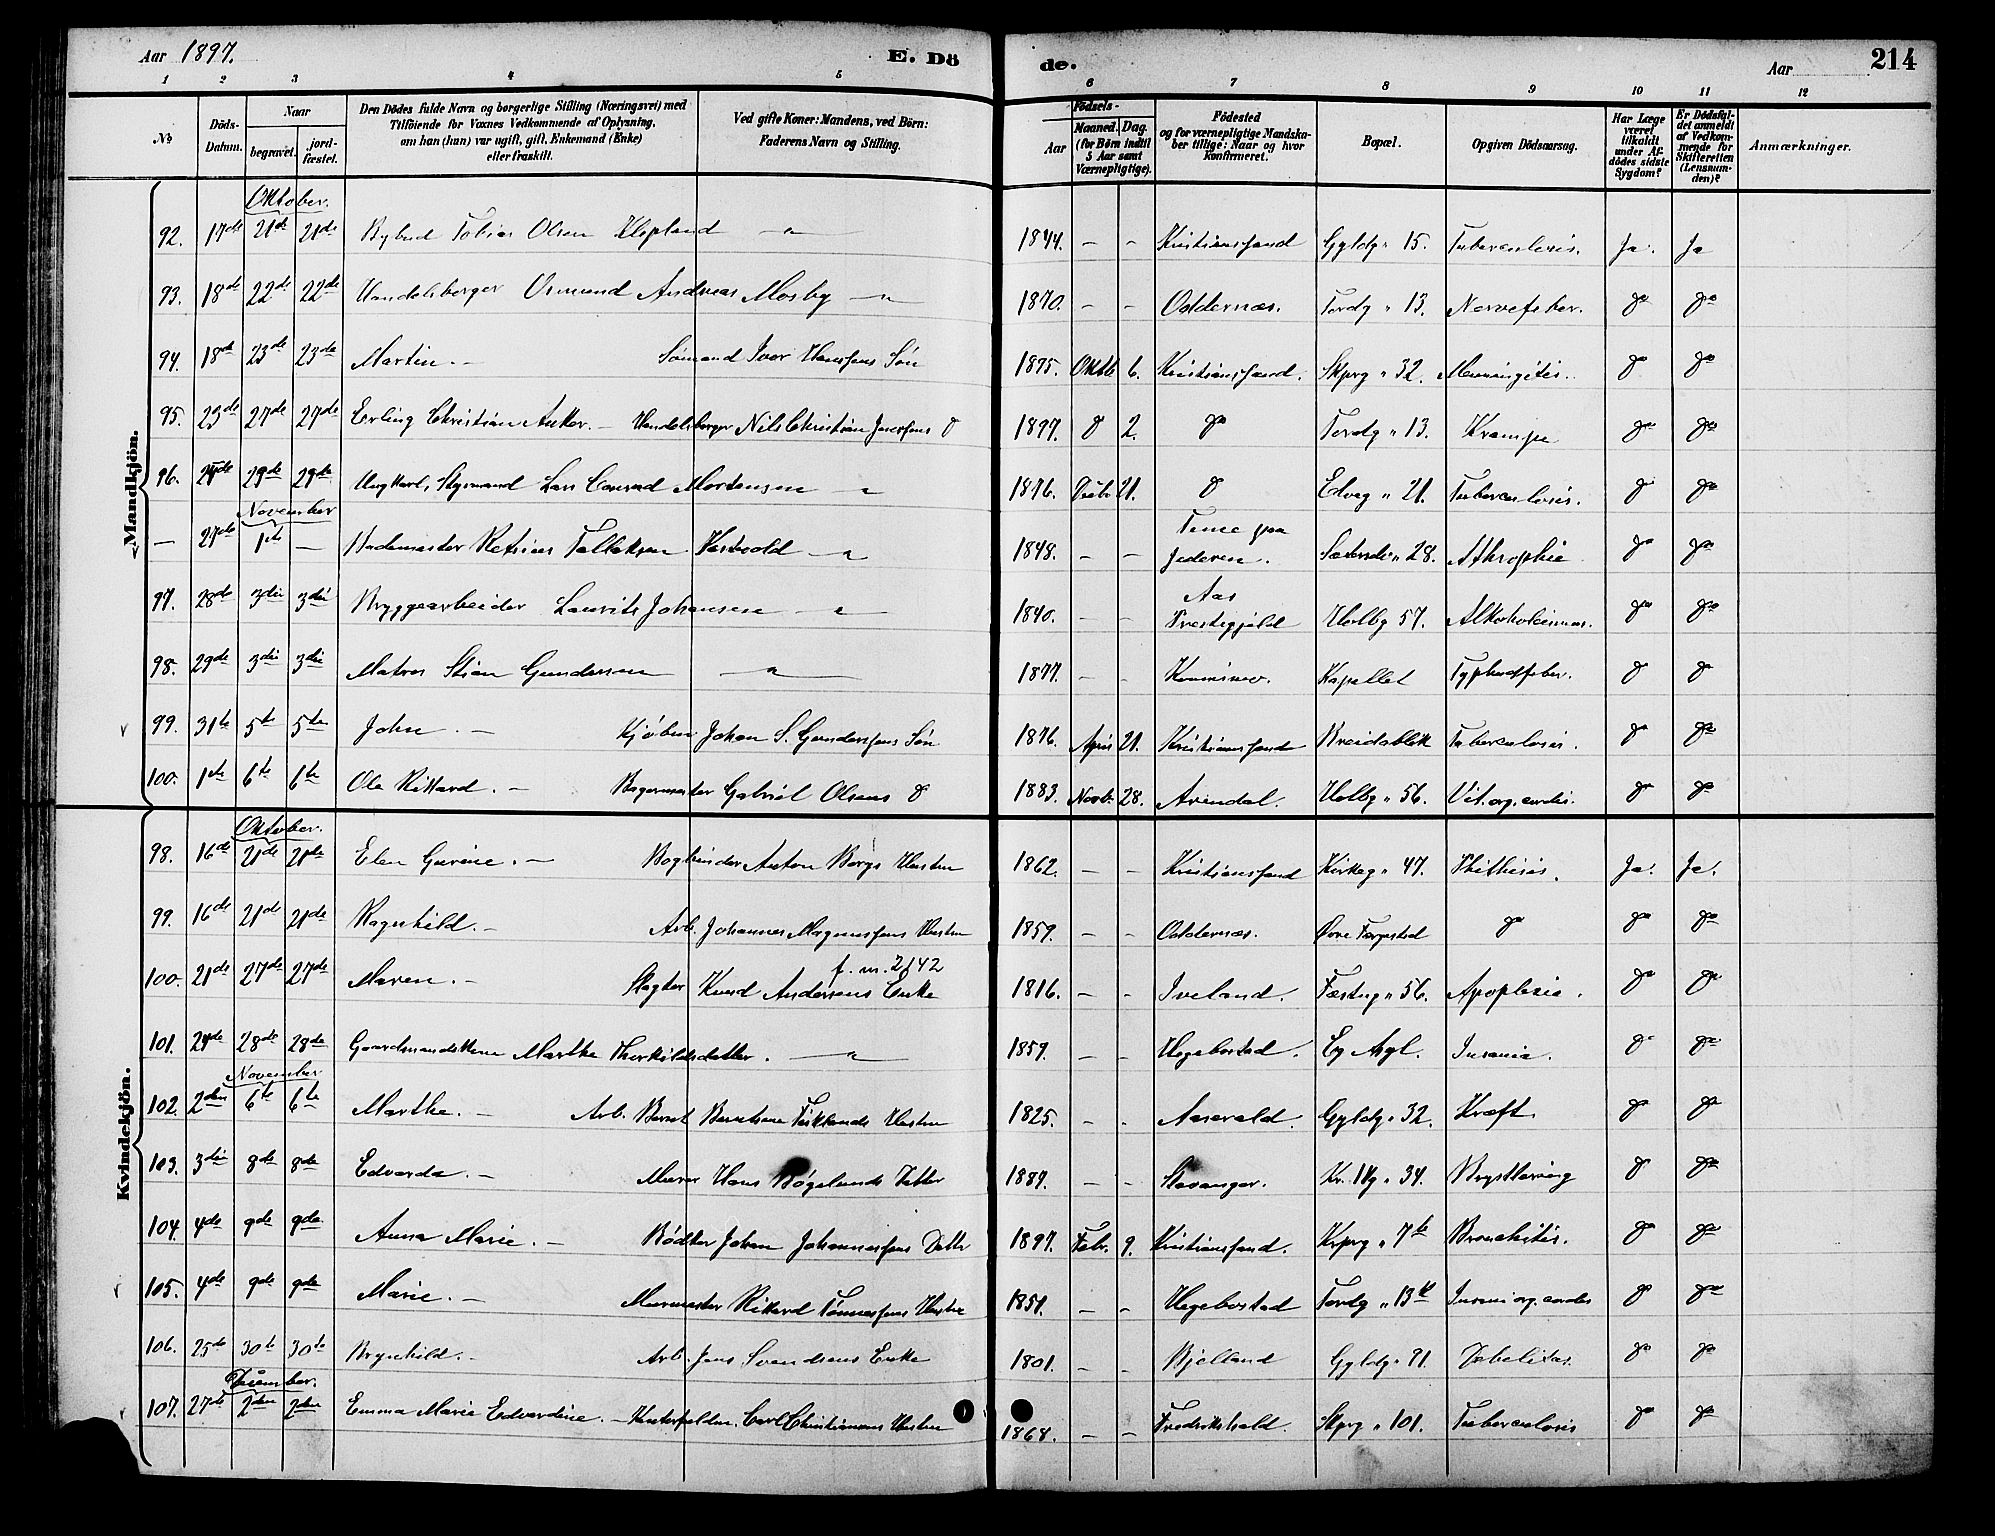 Aar 1897.
E. Dö
de.
Aar
214
1 2 3 4 5 6 7 8 9 10 11 12
No
Döds-Datum.
Naar
begravet.
jord-fæstet.
Den Dödes fulde Navn og borgerlige Stilling (Næringsvei) med
Tilföiende for Voxnes Vedkommende af Oplysning,
om han (hun) var ugift, gift, Enkemand (Enke)
eller fraskilt.
Ved gifte Koner: Mandens, ved Börn:
Faderens Navn og Stilling.
Födsels-
Aar
Maaned. Dag.
(for Börn indtil
5 Aar samt
Værnepligtige).
Födested
og for værnepligtige Mandska-
ber tillige: Naar og hvor
Konfirmeret.
Bopæl.
Opgiven Dödsaarsag.
Har Læge
været
tilkaldt
under Af-
dödes sidste
Sygdom?
Er Dödsfal-
det anmeldt
af Vedkom-
mende for
Skifteretten
(Lensman-
den)?
Anmærkninger.
Mandkjön.
Oktober.
92. 17de 21de 21de Bybud Tobias Olsen Klepland — " — 1844. - - Kristianssand Gyldg " 15. Tuberculosis. Ja. Ja
93. 18de 22de 22de Handelsborger Osmund Andreas Mosby — " — 1870. - - Oddernæs. Tordg " 13. Nervefeber. do do
94. 18de 23de 23de Martin. — Sømand Iver Hanssens Søn 1895. Oktb 6. Kristianssand. Skprg " 32. Menningitis. do do
95. 23de 27de 27de Erling Christian Anker. — Handelsborger Nils Christian Josefsens do 1897. do 2. do Tordg " 13. Krampe do do
96. 24de 29de 29de Ungkarl, Styrmand Lars Conrad Mortensen — " — 1876. 21. do Edveg " 21. Tuberculosis. do do
November
— 27de 1ste — Tallaksen — " — 1848. - - Time paa Jæderen. 28. Athrophie do do
97. 28de 3die 3die Bryggearbeider Laurits Johansen — " — 1840. - - Aas Præstegjæld Holbg 57. Alkoholismus. do do
98. 29de 3die 3die Matros Stian Gundersen — " — 1877. - - Kapellet Typhusfeber. do do
99. 31te 5te 5te John. — Kjøbm Johan S. Gunderssens Søn 1876. April 21. Kristianssand Breidablik Tuberculosis. do do
100. 1ste 6te 6te Ole Rikard. — Bagermester Gabriel Olsens do 1883. Novb. 28. Arendal. Holbg " 56. Vit. org. cordis. do do
Kvindekjön.
Oktober.
98. 16de 21de 21de Elen Gurine. — Bogbinder Anton Bergs Hustru 1862. - - Kristianssand Kirkeg " 47. Phithisis. Ja. Ja.
99. 16de 21de 21de Ragnhild. — Arb. Johannes Magnussens Hustru 1859. - - Oddernæs. Øvre do do do
f. m. 2/42
100. 21de 27de 27de Maren. — Slagter Knud Andersens Enke 1816. - - Iveland. Fæstng " 56. Apoplexia. do do
101. 24de 28de 28de Gaardmandskone Marthe Thorkildsdatter. — " — 1859. - - Hegebostad. Eg Asyl. Insania. do do
November
102. 2den 6te 6te Marthe. — Arb. Berent Berentsens Hustru 1825. - - Aaserald. Gyldg " 32. Kræft. do do
103. 3die 8de 8de Edvarda. — Murer Hans Bøgelunds Datter 1889. - - Stavanger. 34. do do
104. 4de 9de 9de Anna Marie. — Bødker Johan Johannessens Datter 1897. Febr. 9. Kristianssand. 7de Bronchitis. do do
105. 4de 9de 9de Marie. — Murmester Rikard Tønnessens Hustru 1851. - - Hegebostad Tordg " 13de cordis do do
106. 25de 30te 30te Brynhild. — Arb. Jens Svendsens Enke 1801. - - Bjelland Gyldg " 91. Debelitas. do do
December.
107. 27de 2den 2den Emma Marie Edvardine. — Carl Christiansens Hustru 1868. - - Fredrikshald. Skprg " 101. Tuberculosis do do